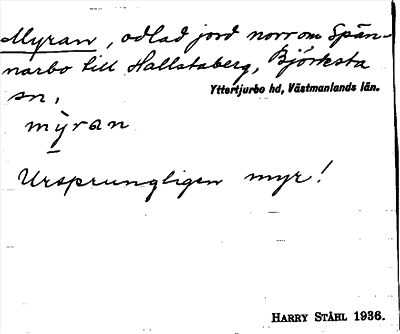 Myran, odlad jord norr om Spän-
narbo till Hallstaberg, Björksta
sn,
Yttertjurbo hd, Västmanlands län.
mỳran
Ursprungligen myr!
HARRY STÅHL 1936.